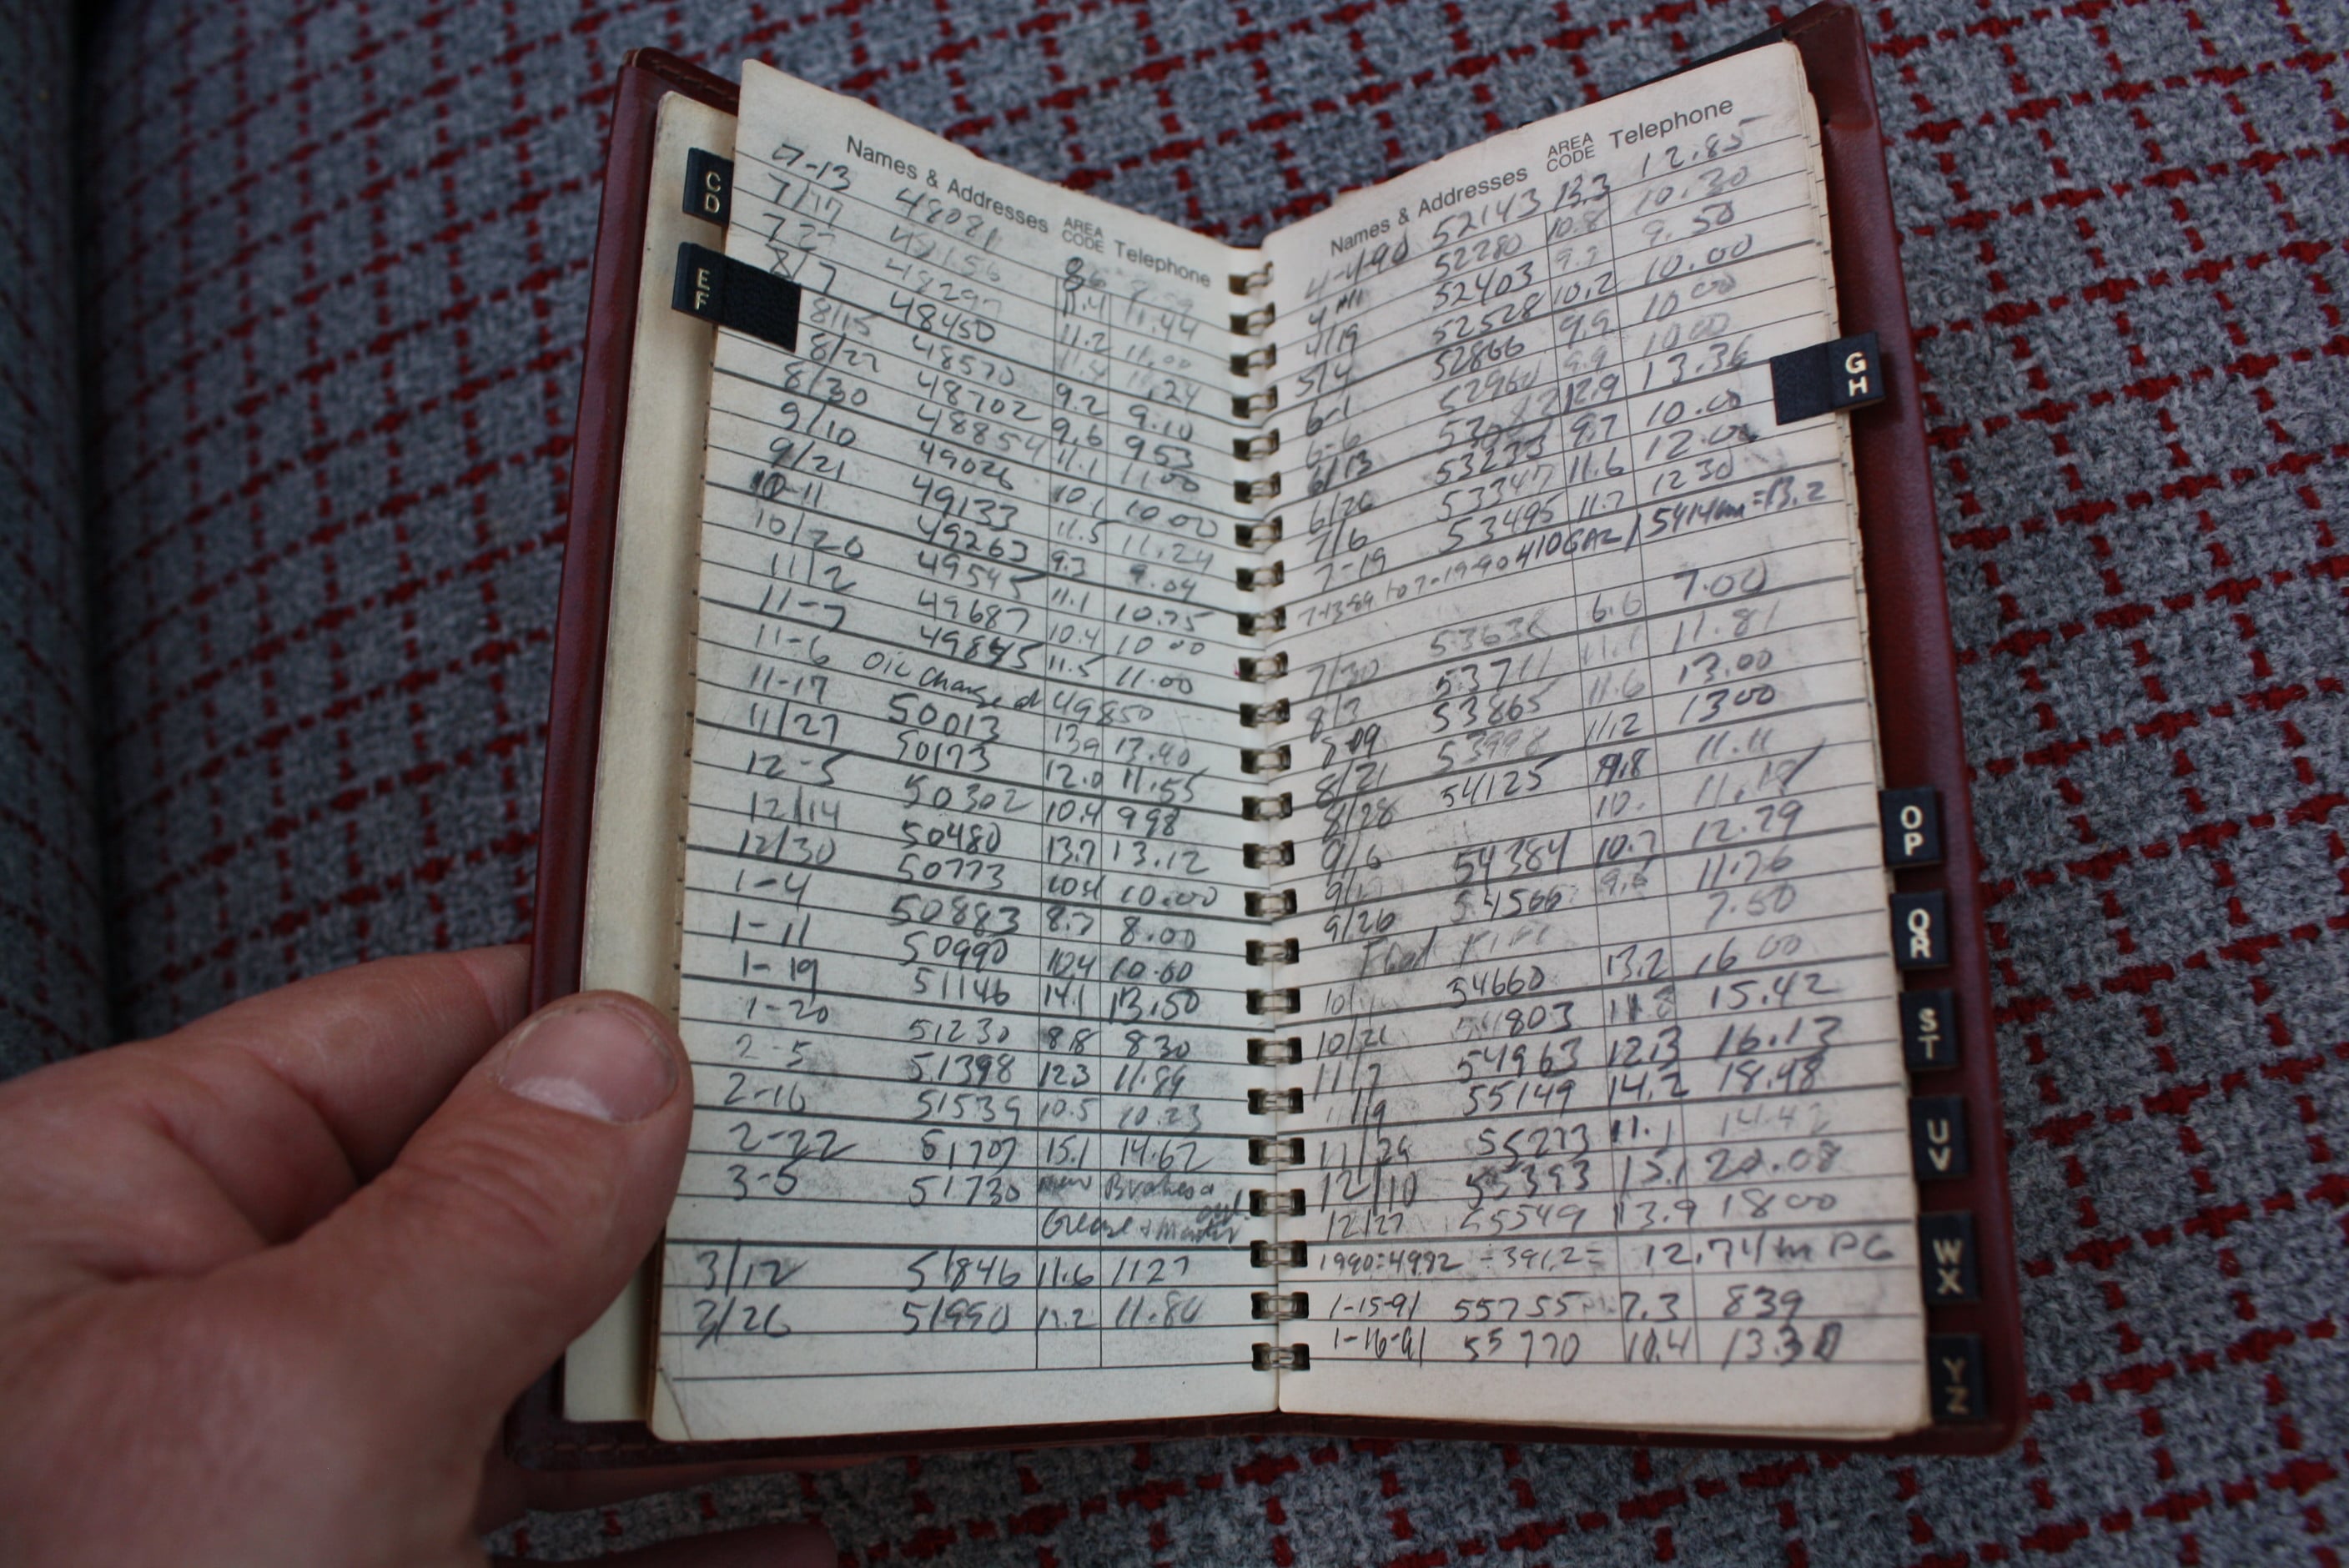 Names & Addresses AREA CODE Telephone
7-13 48081 8.6
7/17 11.4 11.44
7 27 48297 11.2 11.00
8/7 48450 11.24
8/15 48570 9.2 9.10
8/22 48702 9.6 953
8/30 48854 11.1 11.00
9/10 49026 10.1 10 00
9/21 49133 11.5 11.24
10-11 49263 9.3 9.04
10/20 49545 11.1 10.75
11/2 49687 10.4 10 00
11-7 49845 11.5 11.00
11-6 OIL Change at 49850
11-17 50013 139 13.40
11/27 50173 12.0 11.55
12-5 50302 10.4 998
12/14 50480 13.7 13.12
12/30 50773 104 10.00
1-4 50883 8.3 8.00
1-11 50990 104 10.00
1-19 51146 14.1 13.50
1-20 51230 8.8 830
2-5 51398 123 11.89
2-16 51539 10.5 10.23
2-22 51707 15.1 14.62
3-5 51730 new Brakes
Grease & Master
3/12 51846 11.6 1127
3/26 51990 11.84
CD
EF
Names & Addresses AREA CODE Telephone
4-4-90 52143 13.3 12.85
4 52280 10.8 10.30
4/19 52403 9.9 9.50
5/4 52528 10.2 10.00
6-1 52866 9.9 10 00
6-6 52960 9.9 10 00
6/13 12.9 13.36
6/26 53233 9.7 10.00
7/6 53347 11.6 12.00
7-19 53495 11.7 12 30
7-13-89 to 7-19-90 410 GAL / 5414 = 13.2
7/30 53638 6.6 7.00
8/3 53711 11.1 11.81
8 09 53865 11.6 13.00
8/21 53998 1112 1300
8/28 54125 9.8 11.11
9/6 10. 11.17
54384 10.7 12.29
9/26 54566 9.6 11.76
7.50
54660 13.2 16 00
10/21 54803 11.8 15.42
11/7 54963 12.3 16.13
11/9 55149 14.2 18.48
11/29 55273 11.1 14.42
12/10 55393 15.1 20.08
12/27 55549 13.9 1800
1990=4992 ÷ 391.2= 12.74 m PG
1-15-91 55755 7.3 839
1-16-91 55770 10.4 13.30
GH
OP
QR
ST
UV
WX
YZ